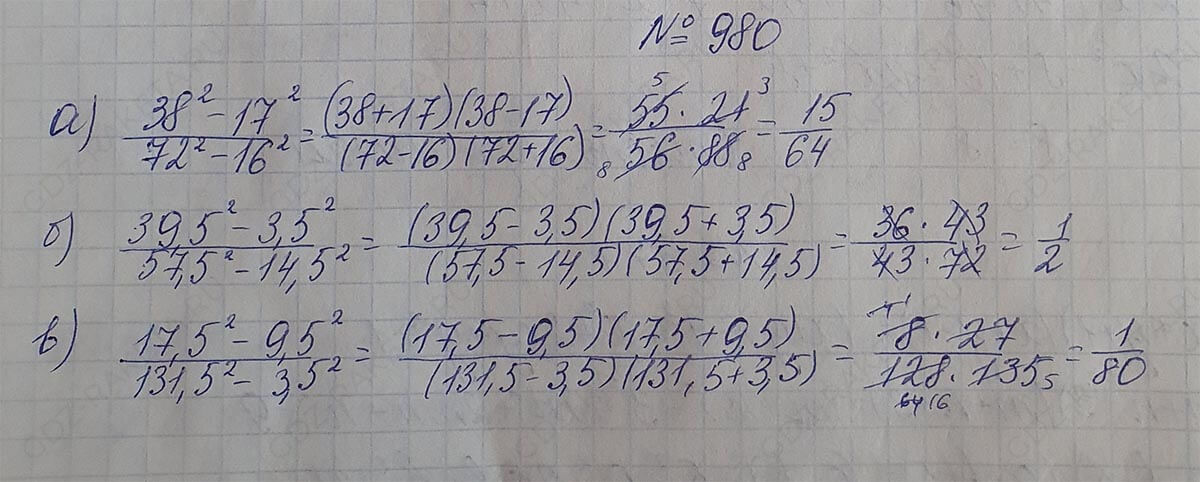 № 980
а) (38² - 17²)/(72² - 16²) = ((38+17)(38-17))/((72-16)(72+16)) = (55 · 21)/(56 · 88) = 15/64
5 3
8 8
б) (39,5² - 3,5²)/(57,5² - 14,5²) = ((39,5 - 3,5)(39,5 + 3,5))/((57,5 - 14,5)(57,5 + 14,5)) = (36 · 43)/(43 · 72) = 1/2
в) (17,5² - 9,5²)/(131,5² - 3,5²) = ((17,5 - 9,5)(17,5 + 9,5))/((131,5 - 3,5)(131,5 + 3,5)) = (8 · 27)/(128 · 135) = 1/80
1
5
16